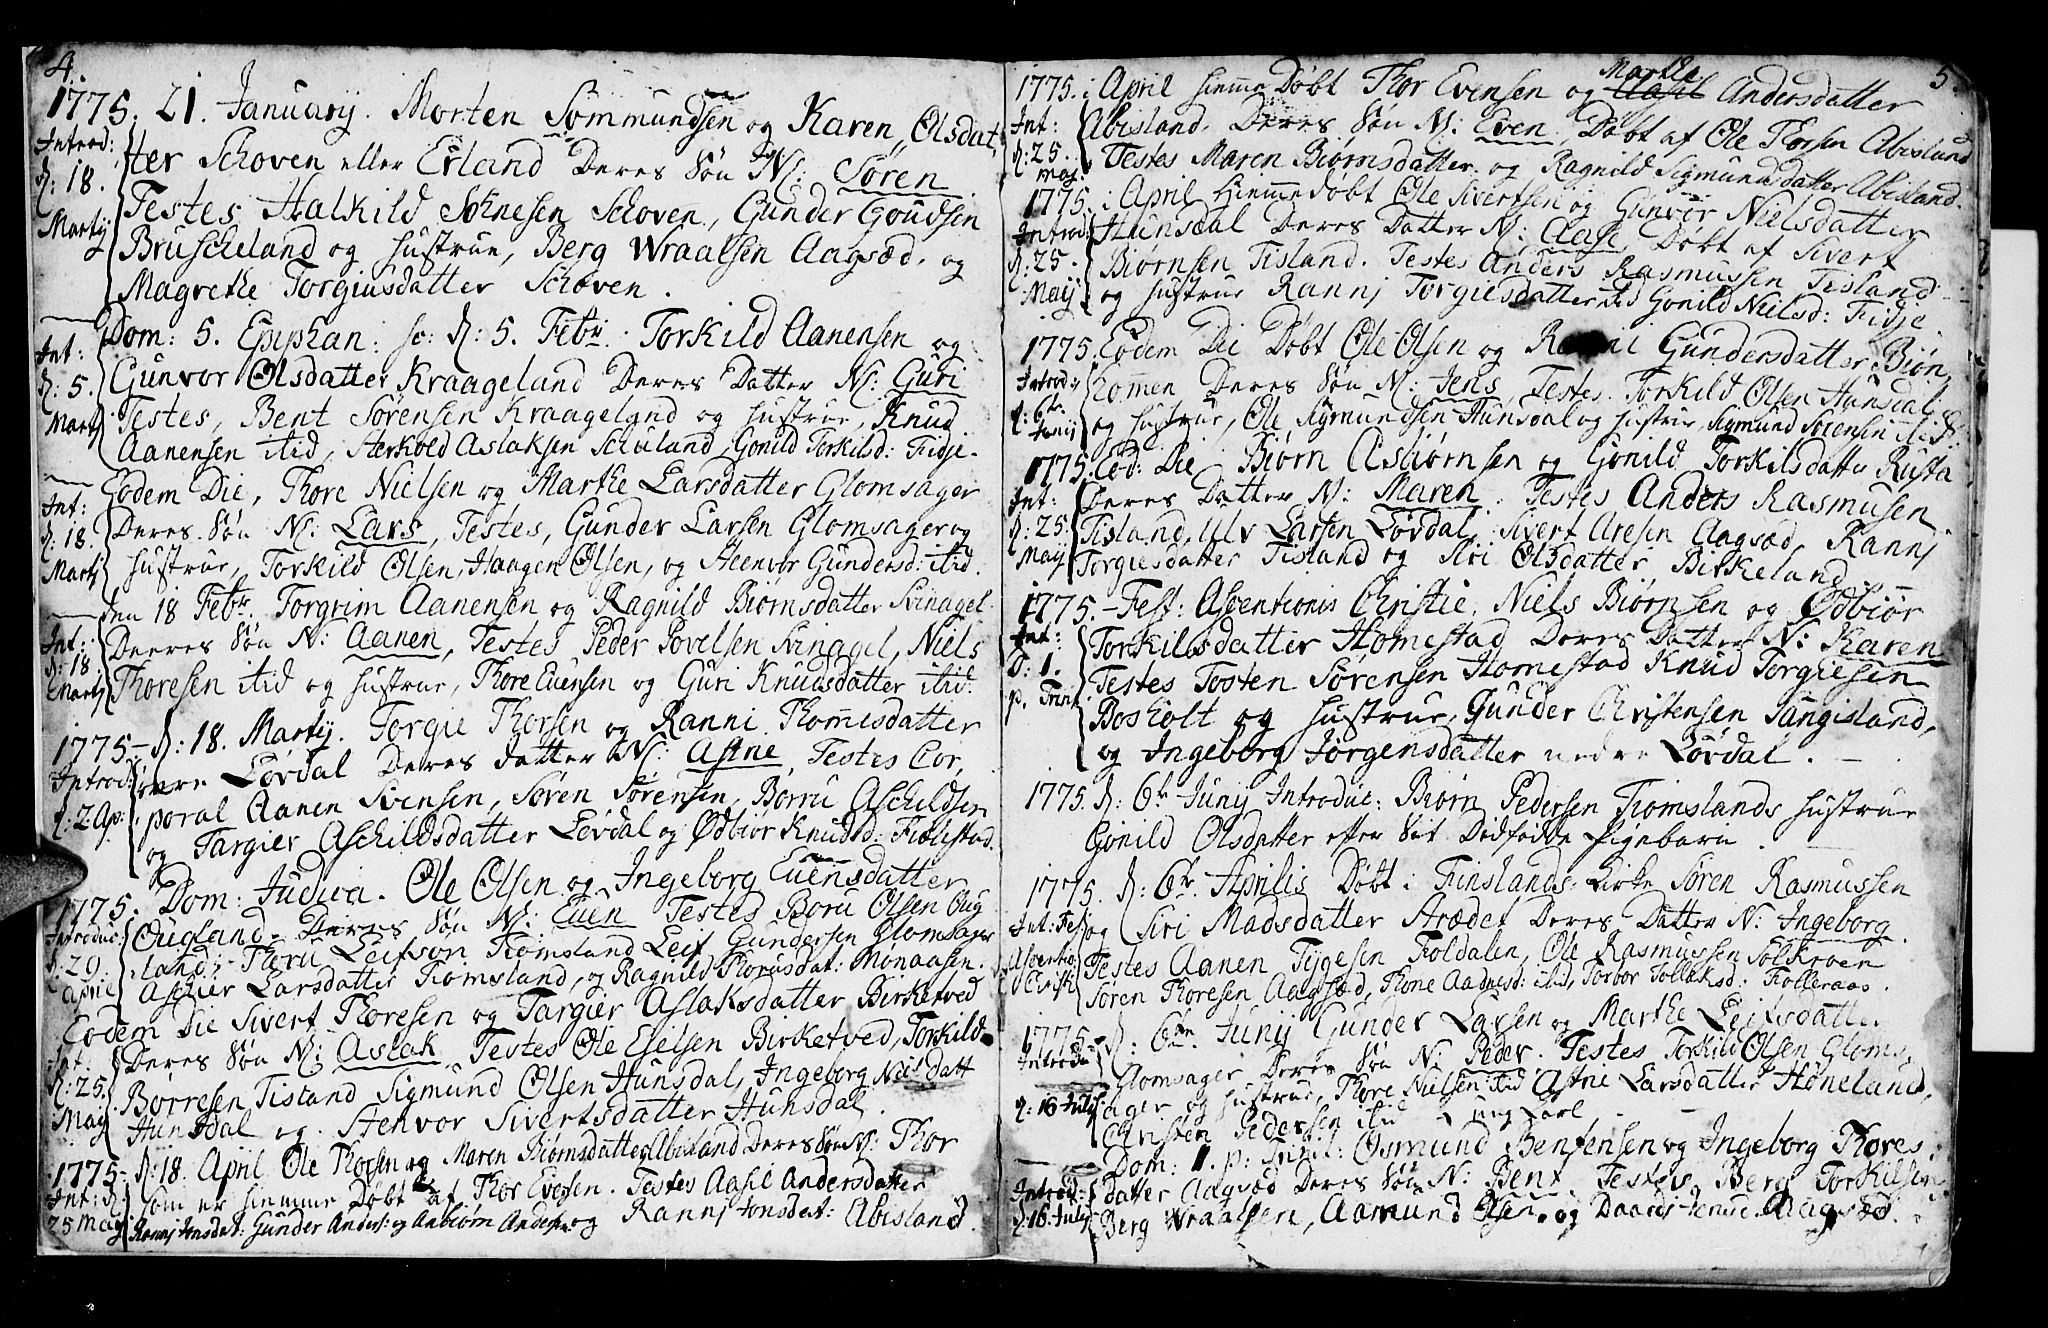 4.
1775. 21. Januarij. Morten Sømmundsen og Karen Olsdat,
Introd: ter Schoven eller Erland Deres Søn N: Søren
d: 18. Testes Halkild Schoven, Gunder Goudsen
Martij Bruscheland og hustrue, Berg Wraalsen Aagsæd, og
Magrethe Torgiusdatter Schoven.
Dom: 5. Epiphan: d: 5. Febr. Torkild Aanensen og
Int: Gunvor Olsdatter Kraageland Deres Datter N: Guri
d: 5. Testes, Bent Sørensen Kraageland og hustrue, Knud
Martij Aanensen itid, Herkold Aslaksen Gonild Torkilsd: Fidje.
Eodem Die, Thore Nielsen og Marthe Larsdatter Glomsager
Int: Deres Søn N: Lars, Testes, Gunder Larsen Glomsager og
d: 18. hustrue, Torkild Olsen, Haagen Olsen, og Steenvor Gundersd: itid.
Martij
den 18 Febr. Torgrim Aanensen og Ragnild Biørnsdatter Svinagel
Int: Deres Søn N: Aanen, Testes Peder Povelsen Svinagel, Niels
d: 18 Thoresen itid og hustrue, Thore Evensen og Guri Knudsdatter itid.
Martij
1775 – d: 18. Martij. Torgie Thorsen og Ranni Thomesdatter
Introd: øvre Løvdal Deres Datter N: Astne, Testes Cor,
d: 2. Ap: poral Aanen Svensen, Søren Sørensen, Borru Aschildsen
og Targier Aschildsdatter Løvdal og Ødbiør Knudsd: Fiølestad.
1775. Dom: Judica. Ole Olsen og Ingeborg Evensdatter
Introduc: Ougland. Deres Søn N: Even Testes Boru Olsen Oug
d: 29. land, Thoru Leifson Tiomsland Leif Gundersen Glomsager
April Aschier Larsdatter Tiomsland, og Ragnild Thorusdat: Monaasen.
Eodem Die Sivert Thoresen og Targier Aslaksdatter Birketved
Int: Deres Søn N: Aslak, Testes Ole Birketved, Torkild
d: 25. Børresen Tisland Sigmund Olsen Hunsdal, Ingeborg Nielsdatt
Maij Hunsdal og Stenvor Sivertsdatter Hunsdal.
1775 – d: 18 April Ole Thorsen og Maren Biørnsdatter Abisland Deres Søn N: Thor
Int: d: som er hiemme Døbt af Thor Evensen. Testes Aasil Andersdatter
25 Maij Ranni Jonsdat: Gunder Anders: og Anbiørn Anders: og Rannj Jonsdat: Abisland.
5
1775. i April hiemme Døbt Thor Evensen og Aasil Marthe Andersdatter
Int: Abisland. Deres Søn N: Even, Døbt af Ole Thorsen Abisland
d: 25. Testes Maren Biørnsdatter og Ragnild Sigmundsdatter Abisland.
Maj.
1775. i April Hiemmedøbt Ole Sivertsen og Gunvor Nielsdatter
Introd: Hunsdal Deres Datter N: Aase, Døbt af Sivert
d: 25. Biørnsen Tisland. Testes Anders Rasmussen Tisland
Maij og hustrue Rannj Torgiesdatter itid Gonild Nielsd: Fidje.
1775. Eodem Die Døbt Ole Olsen og Ranni Gundersdatter Biøn,
Introd: kommen Deres Søn N: Jens, Testes Torkild Olsen Hunsdal
d: 6te og hustrue, Ole Sigmundsen Hunsdal og hustrue, Sigmund Sørensen itid.
Junij
1775. Eod: Die Biørn Asbiørnsen og Gonild Torkilsdatter Rusta
Int: Deres Datter N: Maren. Testes Anders Rasmusen
d: 25 Tisland, Ulv Larsen Løvdal, Sivert Aresen Aagsæd, Rannj
Maij Torgiesdatter Tisland og Siri Olsdatter Birkeland.
1775. – Fest: Ascentionis Christie, Niels Biørnsen og Ødbiør
Int: Torkilsdatter Homestad Deres Datter N: Karen
D: 1. Testes Tosten Sørensen Homestad Knud Torgiesen
p. Trinit. Bosholt og hustrue, Gunder Christensen Sangisland,
og Ingeborg Jørgensdatter nedre Løvdal.
1775. d: 6te Junij Introduc: Biørn Pedersen Tiomslands hustrue
Gonild Olsdatter efter sit Dødfødde Pigebarn.
1775. d: 6te Aprilis Døbt i Finslands Kirke Søren Rasmussen
Int: Fest: og Siri Madsdatter Arædet Deres Datter N: Ingeborg.
Ascentio Testes Aanen Tygesen Foldalen, Ole Rasmussen
Christi Søren Thoresen Aagsæd, Thone Aadnesd: itid, Torbor Tollaksd: Holleraas.
1775 – d: 6te Junij Gunder Larsen og Marthe Leifsdatter
Introdu Glomsager Deres Søn N: Peder. Testes Torkild Olsen Gloms,
d: 16 Julij ager og hustrue, Thore Nielsen itid Astrie Larsdatter Høneland,
Christen Pedersen itid ung Carl.
Dom: 1. p: Trinit: Osmund Bentensen og Ingeborg Thores
Introd: datter Aagsæd Deres Søn N: Bent Testes Berg Torkilsen
d: 16. Julij Berg Wraalsen, Aamund Olsen og Aagsæd.